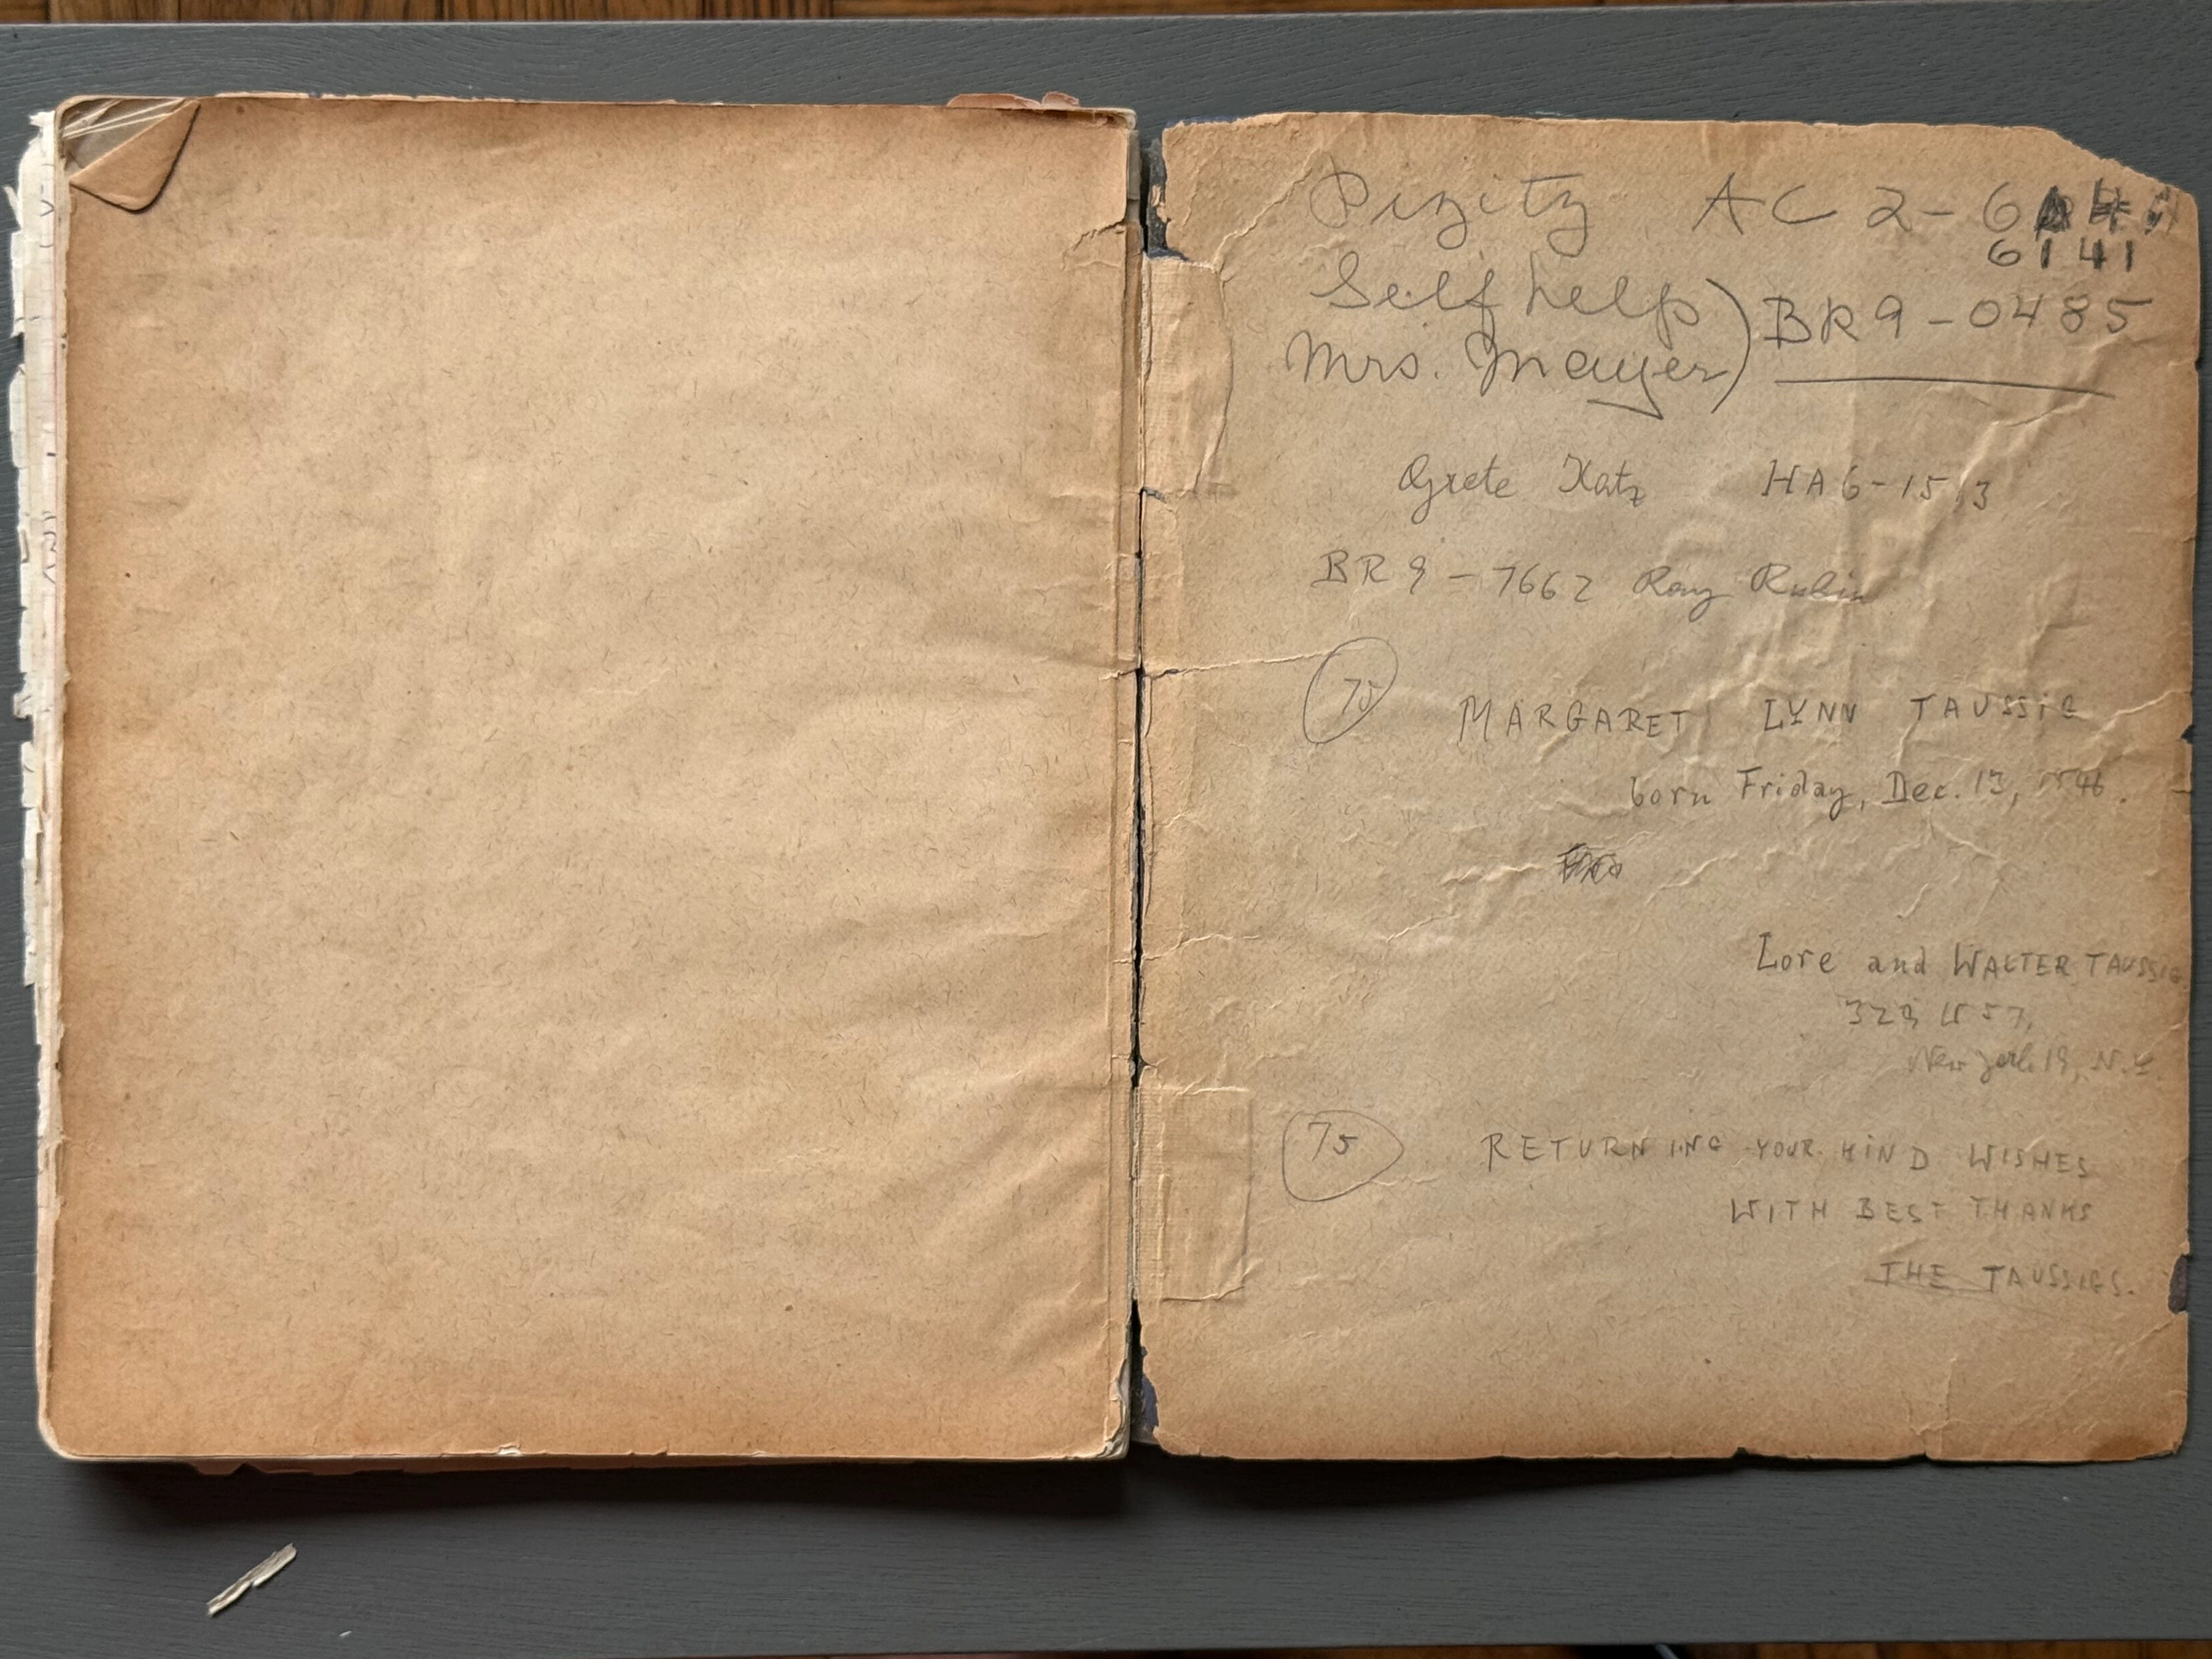 Pizitz AC 2-6
6141
Selfhelp) BR9-0485
Mrs. Mayer)
Grete Katz HA6-1513
BR9-7662 Ray Rubin
75 MARGARET LYNN TAUSSIG
born Friday, Dec. 13, 1946.
Lore and WALTER TAUSSIG
323 W 57,
New York 19, N.Y.
75 RETURNING YOUR KIND WISHES
WITH BEST THANKS
THE TAUSSIGS.